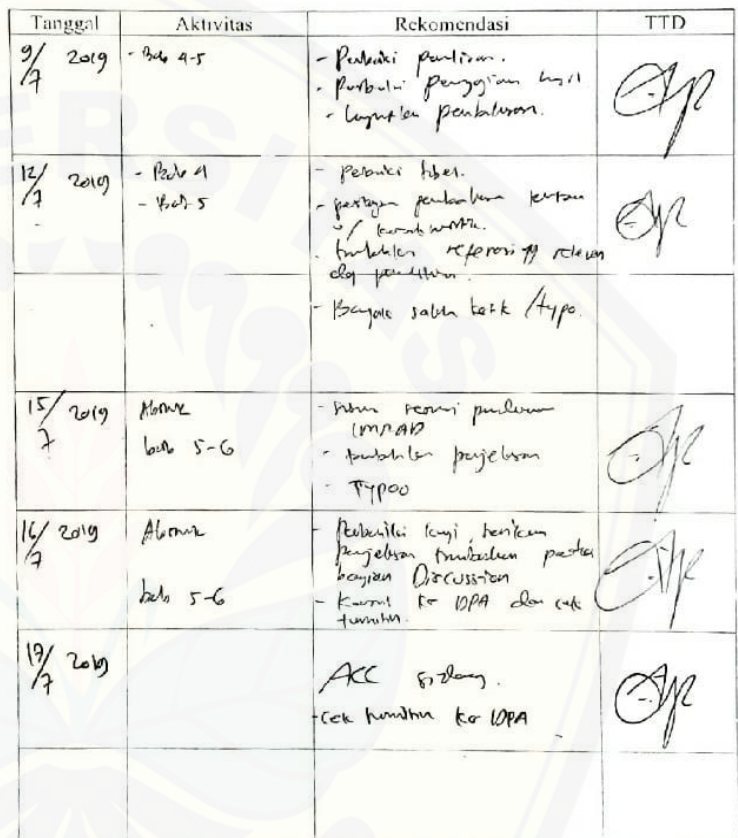 Tanggal Aktivitas Rekomendasi TTD
9/7 2019 - Bab 4-5 - Perbaiki penulisan.
- Perbaiki penyajian hasil
- Lanjutkan pembahasan.
12/7 2019 - Bab 4 - perbaiki tabel.
- Bab 5 - pembahasan
referensi yg relevan
dg penelitian.
- Banyak salah ketik /typo.
15/7 2019 Abstrak - sesuai
IMRAD
bab 5-6 - tambahkan penjelasan
- Typoo
16/7 2019 Abstrak - Perbaiki lagi, berikan
penjelasan tambahan pada
bagian Discussion
bab 5-6 - Konsul ke DPA dan cek
turnitin.
17/7 2019 ACC sidang.
- Cek turnitin ke DPA